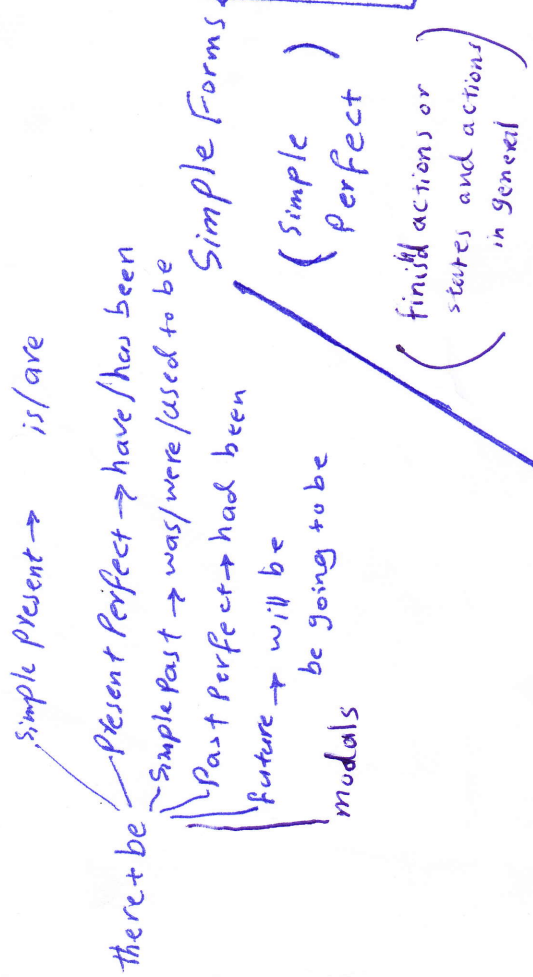 Simple Present → is/are
there + be
Present Perfect → have/has been
Simple Past → was/were/used to be
Past Perfect → had been
future → will be
be going to be
modals
Simple Forms
( Simple
Perfect )
( finisd actions or
states and actions
in general )